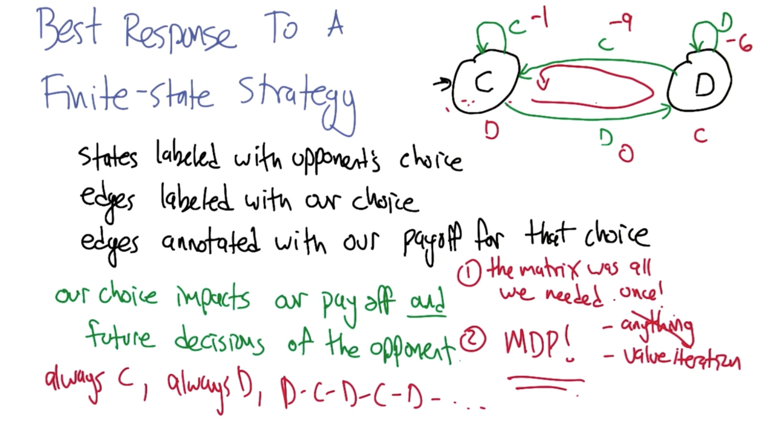 Best Response To A
Finite-state Strategy
C -1
C -9
D -6
C
D
D
D 0
C
states labeled with opponent's choice
edges labeled with our choice
edges annotated with our payoff for that choice
our choice impacts our payoff and
future decisions of the opponent
always C, always D, D-C-D-C-D-...
① the matrix was all
we needed once!
② MDP!
- anything
- value iteration